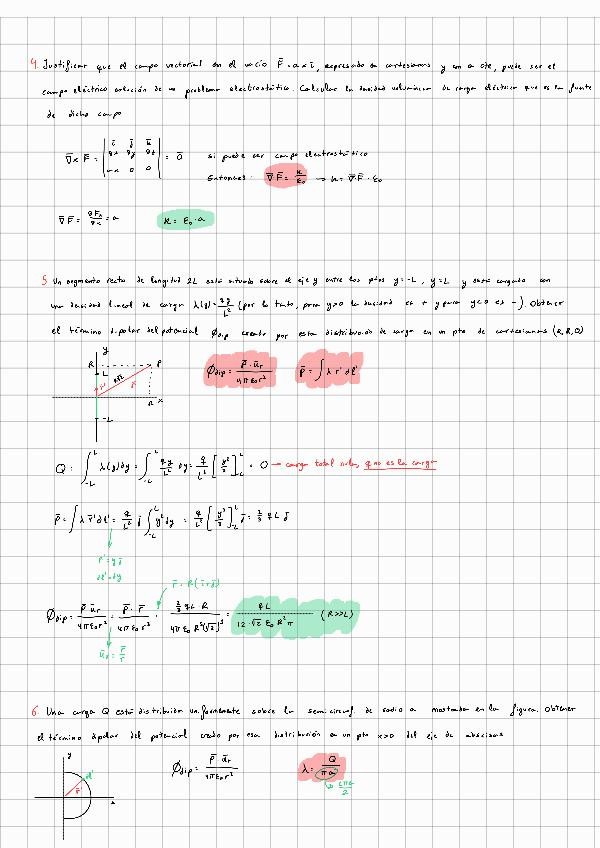 4. Justificar que el campo vectorial en el vacío F̄ = a x ī, expresado en cartesianas y con a cte, puede ser el
campo eléctrico solución de un problema electrostático. Calcular la densidad volumínica de carga eléctrica que es la fuente
de dicho campo
∇̄ x F̄ = | ī j̄ k̄ | = 0̄ si puede ser campo electrostático
Entonces: ∇̄ F̄ = / ε₀ → = ∇̄ F̄ · ε₀
∇̄ F̄ = = a = ε₀ · a
5. Un segmento recto de longitud 2L está situado sobre el eje y entre los ptos y=-L, y=L y está cargado con
una densidad lineal de carga λ(y) = qy/L² (por lo tanto, para y>0 la densidad es + y para y<0 es -). Obtener
el término dipolar del potencial ϕdip creado por esta distribución de carga en un pto de cartesianas (R,R,0)
y
R L P
ϕdip = p̄ · ūr / 4πε₀r² p̄ = ∫ λ r̄' dl'
R x
-L
Q = ∫₋L^L λ(y)dy = ∫₋L^L qy/L² dy = q/L² [y²/2]₋L^L = 0 → carga total nula, q no es la carga
p̄ = ∫ λ r̄' dl' = q/L² j̄ ∫₋L^L y² dy = q/L² [y³/3]₋L^L j̄ = 2/3 qL j̄
r̄' = y j̄
dl' = dy
r̄ = R(ī+j̄)
ϕdip = p̄ · ūr / 4πε₀r² = p̄ · r̄ / 4πε₀r³ = 2/3 qL · R / 4πε₀R³(√2)³ = qL / 12·√2 ε₀R²π (R>>L)
ūr = r̄/r
6. Una carga Q está distribuida uniformemente sobre la semicircunf. de radio a mostrada en la figura. Obtener
el término dipolar del potencial creado por esa distribución a un pto x>0 del eje de abscisas
y
dl'
r̄'
ϕdip = p̄ · ūr / 4πε₀r² λ = Q / πa
2πa/2